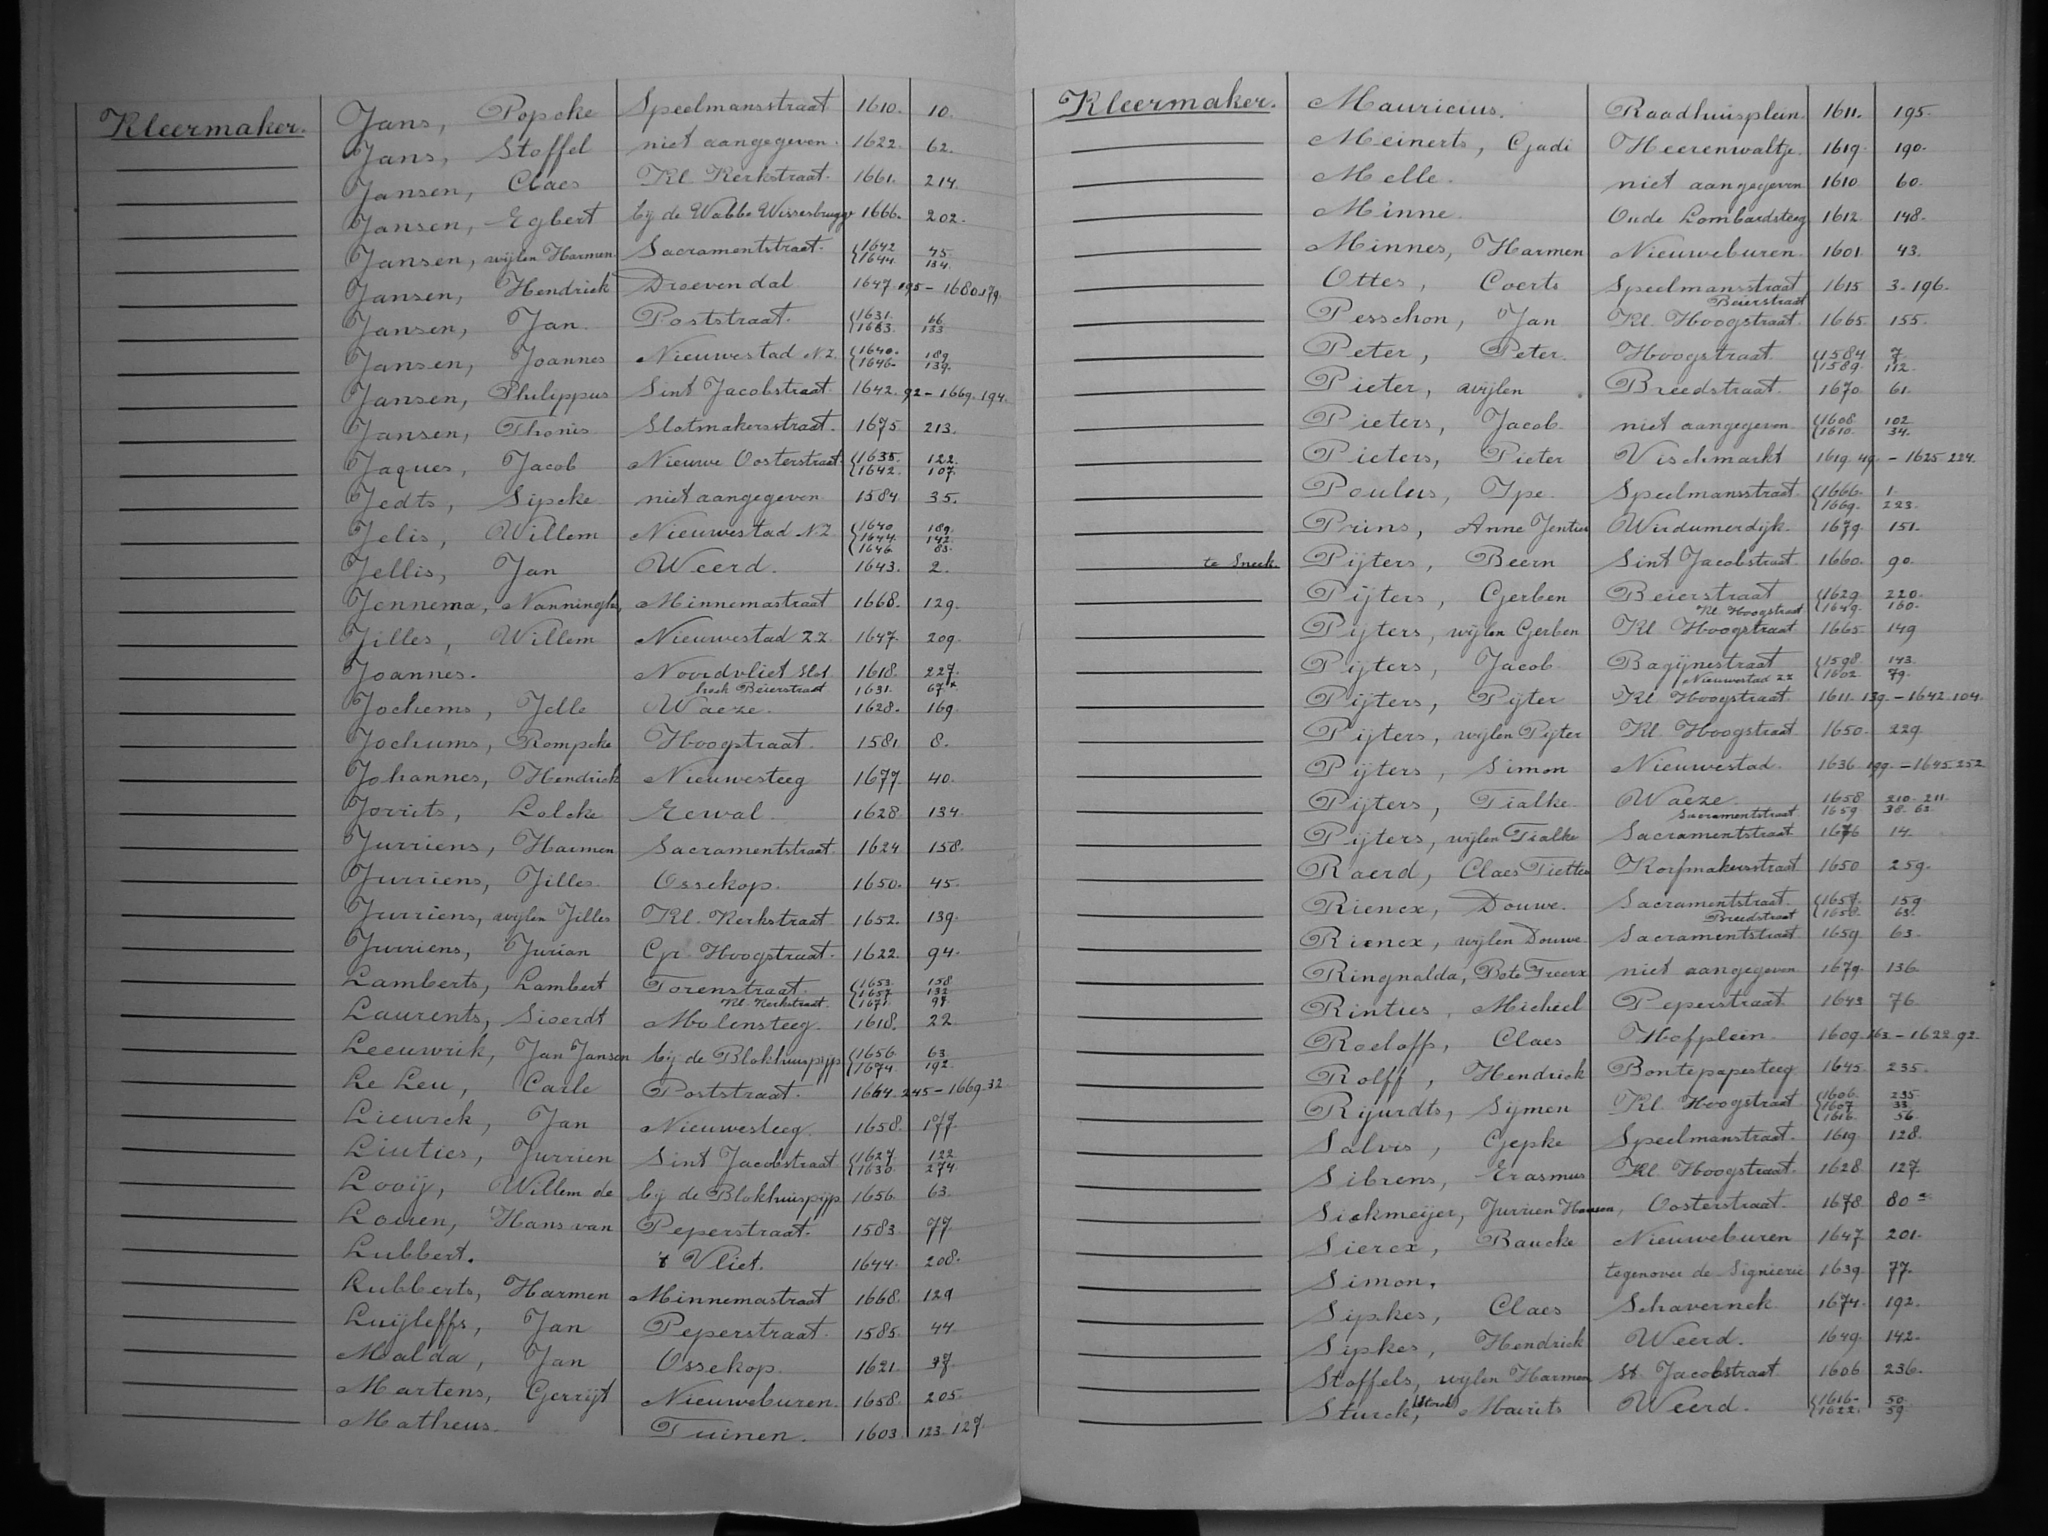 Kleermaker. Jans, Popcke Speelmansstraat 1610. 10.
Jans, Stoffel niet aangegeven. 1622. 62.
Jansen, Claes Kl. Kerkstraat. 1661. 214.
Jansen, Egbert bij de Wabbe Wissesbrugge 1666. 202.
Jansen, wijlen Harmen Sacramentstraat. 1642 45.
1644. 134.
Jansen, Hendrick Droevendal 1647. 195 - 1680.179.
Jansen, Jan. Poststraat. 1631. 66
1663. 133.
Jansen, Joannes Nieuwestad N.Z. 1640. 189.
1646. 139.
Jansen, Philippus Sint Jacobstraat. 1642. 92 - 1669. 194.
Jansen, Thonis Slotmakersstraat. 1675. 213.
Jaques, Jacob Nieuwe Oosterstraat. 1635. 122.
1642. 107.
Jedts, Sipcke niet aangegeven 1584. 35.
Jelis, Willem Nieuwestad N.Z. 1640 189.
1644. 142.
1646. 83.
Jellis, Jan Weerd. 1643. 2.
Jennema, Nanningh, Minnemastraat 1668. 129.
Jilles, Willem Nieuwestad Z.Z. 1647. 209.
Joannes. Noordvliet Slot 1618. 227.
hoek Beierstraat 1631. 67
Jochems, Jelle Waeze. 1628. 169.
Jochums, Rompcke Hoogstraat. 1581. 8.
Johannes, Hendrick Nieuwesteeg 1677. 40.
Jorrits, Lolcke Eewal. 1628. 134.
Jurriens, Harmen Sacramentstraat 1624 158.
Jurriens, Jilles Ossekop. 1650. 45.
Jurriens, wijlen Jilles Kl. Kerkstraat 1652. 139.
Jurriens, Jurian Gr. Hoogstraat. 1622. 94.
Lamberts, Lambert Torenstraat. 1653. 158
1657. 132
Kl. Kerkstraat. 1671. 97.
Laurents, Sioerdt Molensteeg. 1618. 22.
Leeuwrik, Jan Jansen bij de Blokhuispijp 1656. 63.
1674. 192.
Le Leu, Carle Poststraat. 1664. 245 - 1669. 32.
Lieurck, Jan Nieuwesteeg. 1658. 177.
Liuties, Jurrien Sint Jacobstraat 1627. 122
1630. 274.
Looij, Willem de bij de Blokhuispijp 1656. 63.
Loeren, Hans van Peperstraat. 1583. 77.
Lubbert. 't Vliet. 1644. 208.
Lubberts, Harmen Minnemastraat 1668. 129
Luijleffs, Jan Peperstraat. 1585. 44.
Malda, Jan Ossekop. 1621. 37.
Martens, Gerrijt Nieuweburen. 1658. 205.
Matheus. Tuinen. 1603. 123. 127.
Kleermaker. Mauricius. Raadhuisplein 1611. 195.
Meinerts, Gadi Heerenwaltje. 1619. 190.
Melle. niet aangegeven 1610. 60.
Minne. Oude Lombardsteeg 1612. 148.
Minnes, Harmen Nieuweburen. 1601. 43.
Ottes, Coerts Speelmansstraat 1615 3. 196.
Beierstraat
Pesschon, Jan Kl. Hoogstraat. 1665. 155.
Peter, Peter. Hoogstraat 1584 7.
1589. 112.
Pieter, wijlen Breedstraat. 1670. 61.
Pieters, Jacob. niet aangegeven 1608. 102
1610. 34.
Pieters, Pieter Vischmarkt 1619. 49. - 1625. 224.
Poulus, Ype. Speelmansstraat. 1666. 1.
1669. 223.
Prins, Anne Jenties Wirdumerdijk. 1679. 151.
te Sneek. Pijters, Beern Sint Jacobstraat. 1660. 90.
Pijters, Gerben Beierstraat 1629. 220.
Kl. Hoogstraat 1649. 160.
Pijters, wijlen Gerben Kl Hoogstraat 1665 149
Pijters, Jacob Bagijnestraat 1598. 143.
Nieuwestad ZZ 1602. 79.
Pijters, Pijter Kl Hoogstraat 1611. 139. - 1642. 104.
Pijters, wijlen Pijter Kl Hoogstraat 1650. 229
Pijters, Simon Nieuwestad. 1636. 199. - 1645. 252
Pijters, Tialke Waeze. 1658 210. 211.
Sacramentstraat 1659 38. 62.
Pijters, wijlen Tialke Sacramentstraat 1676 14.
Raerd, Claes Tiettes Korfmakersstraat 1650 259.
Rienex, Douwe. Sacramentstraat. 1657. 159
Breedstraat 1658. 63.
Rienex, wijlen Douwe. Sacramentstraat 1659. 63.
Ringnalda, Bote Freerx niet aangegeven 1679. 136
Rinties, Michiel Peperstraat. 1643 76.
Roeloff, Claes Hofplein. 1609. 163 - 1622. 92.
Rolff, Hendrick Bontepapesteeg 1645. 235.
Rijurdts, Sijmen Kl. Hoogstraat 1606. 235
1607 33.
1616. 56.
Salvis, Gepke Speelmanstraat. 1619. 128.
Sibrens, Erasmus Kl. Hoogstraat. 1628. 127.
Siekmeijer, Jurrien Hansen, Oosterstraat. 1678. 80
Sierex, Baucke Nieuweburen 1647 201.
Simon, tegenover de Signierie 1639. 77.
Sipkes, Claes Schavernek. 1674. 192.
Sipkes, Hendrick Weerd. 1649. 142.
Stoffels, wijlen Harmen St. Jacobstraat 1606 236.
Sturck, Maurits Weerd. 1616. 50.
1622. 59